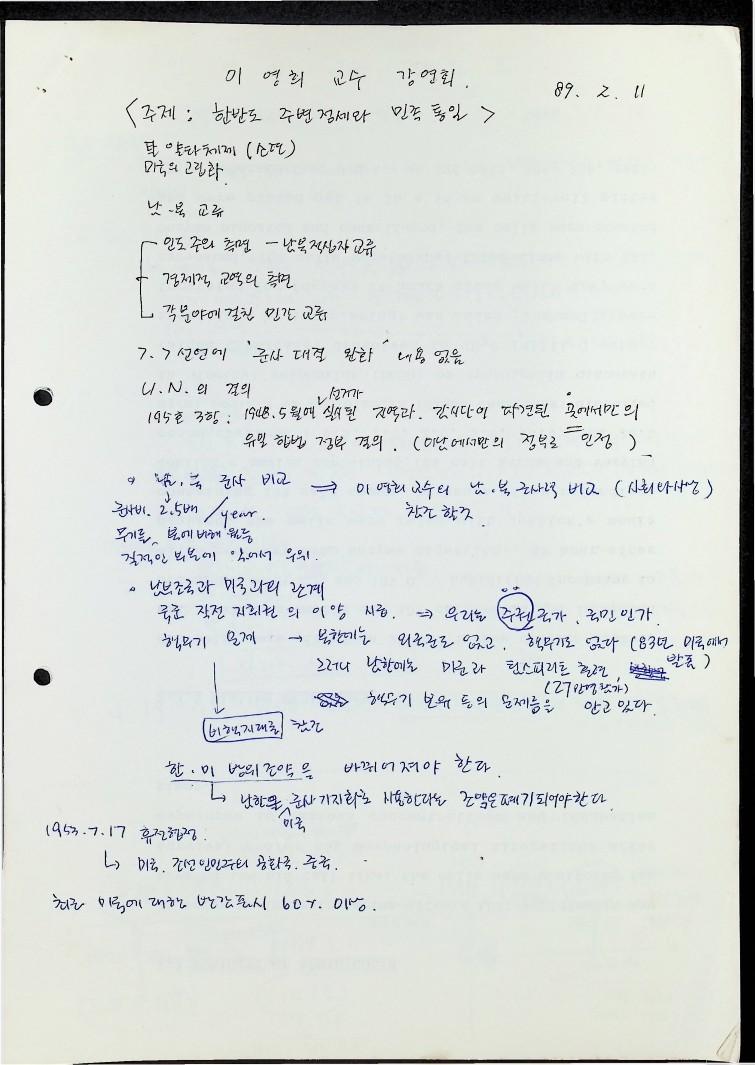 이 영희 교수 강연회.
89. 2. 11
<주제 : 한반도 주변정세와 민족 통일>
탈 얄타체제 (소련)
미국의 고립화.
남-북 교류
인도주의 측면 - 남북적십자교류
경제적 교역의 측면
각분야에 걸친 민간 교류
7.7선언에 '군사 대결 완화' 내용 없음
U.N.의 결의
195호 3항 : 1948.5월에 선거가 실시된 지역과. 감시단이 파견된 곳에서만의
유일 합법 정부 결의. (이남에서만의 정부로 인정)
남.북 군사 비교 ⇒ 이영희교수의 남.북 군사력 비교 (사회와사상)
군사비. 2.5배/year. 참조 할것.
무기를 북에 비해 월등
질적인 부분에 있어서 우위.
남부조국과 미국과의 관계
국군 작전 지휘권의 이양 시급. ⇒ 우리는 주권국가. 국민인가.
핵무기 문제 → 북한에는 외국군도 없고. 핵무기도 없다 (83년 미국에서 발표)
그러나 남한에는 미군과 팀스피리트 훈련,
(27만명참가)
핵무기 보유 등의 문제들을 안고 있다.
비핵지대를 창간
한.미 방위조약을 바뀌어져야 한다.
남한을 미국 군사기지화로 사용한다는 조약은 폐기되어야한다.
1953.7.17 휴전협정.
미국. 조선인민주의 공화국. 중국.
최근 미국에 대한 반감표시 60%. 이상.